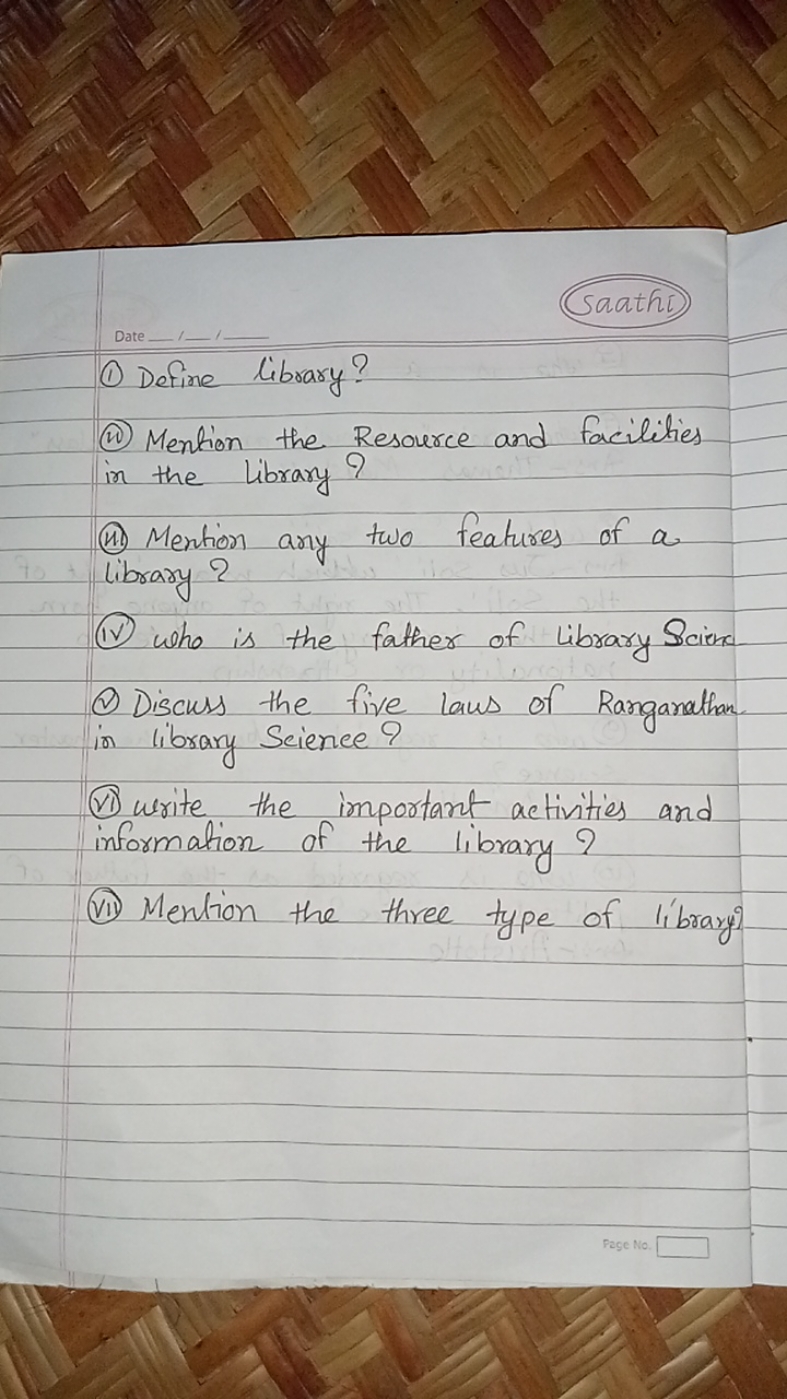 Saathi
Date __/__/____
(i) Define library?
(ii) Mention the Resource and facilities
in the library?
(iii) Mention any two features of a
library?
(iv) who is the father of library
(v) Discuss the five laws of Ranganathan
in library Science?
(vi) write the important activities and
information of the library?
(vii) Mention the three type of library?
Page No.